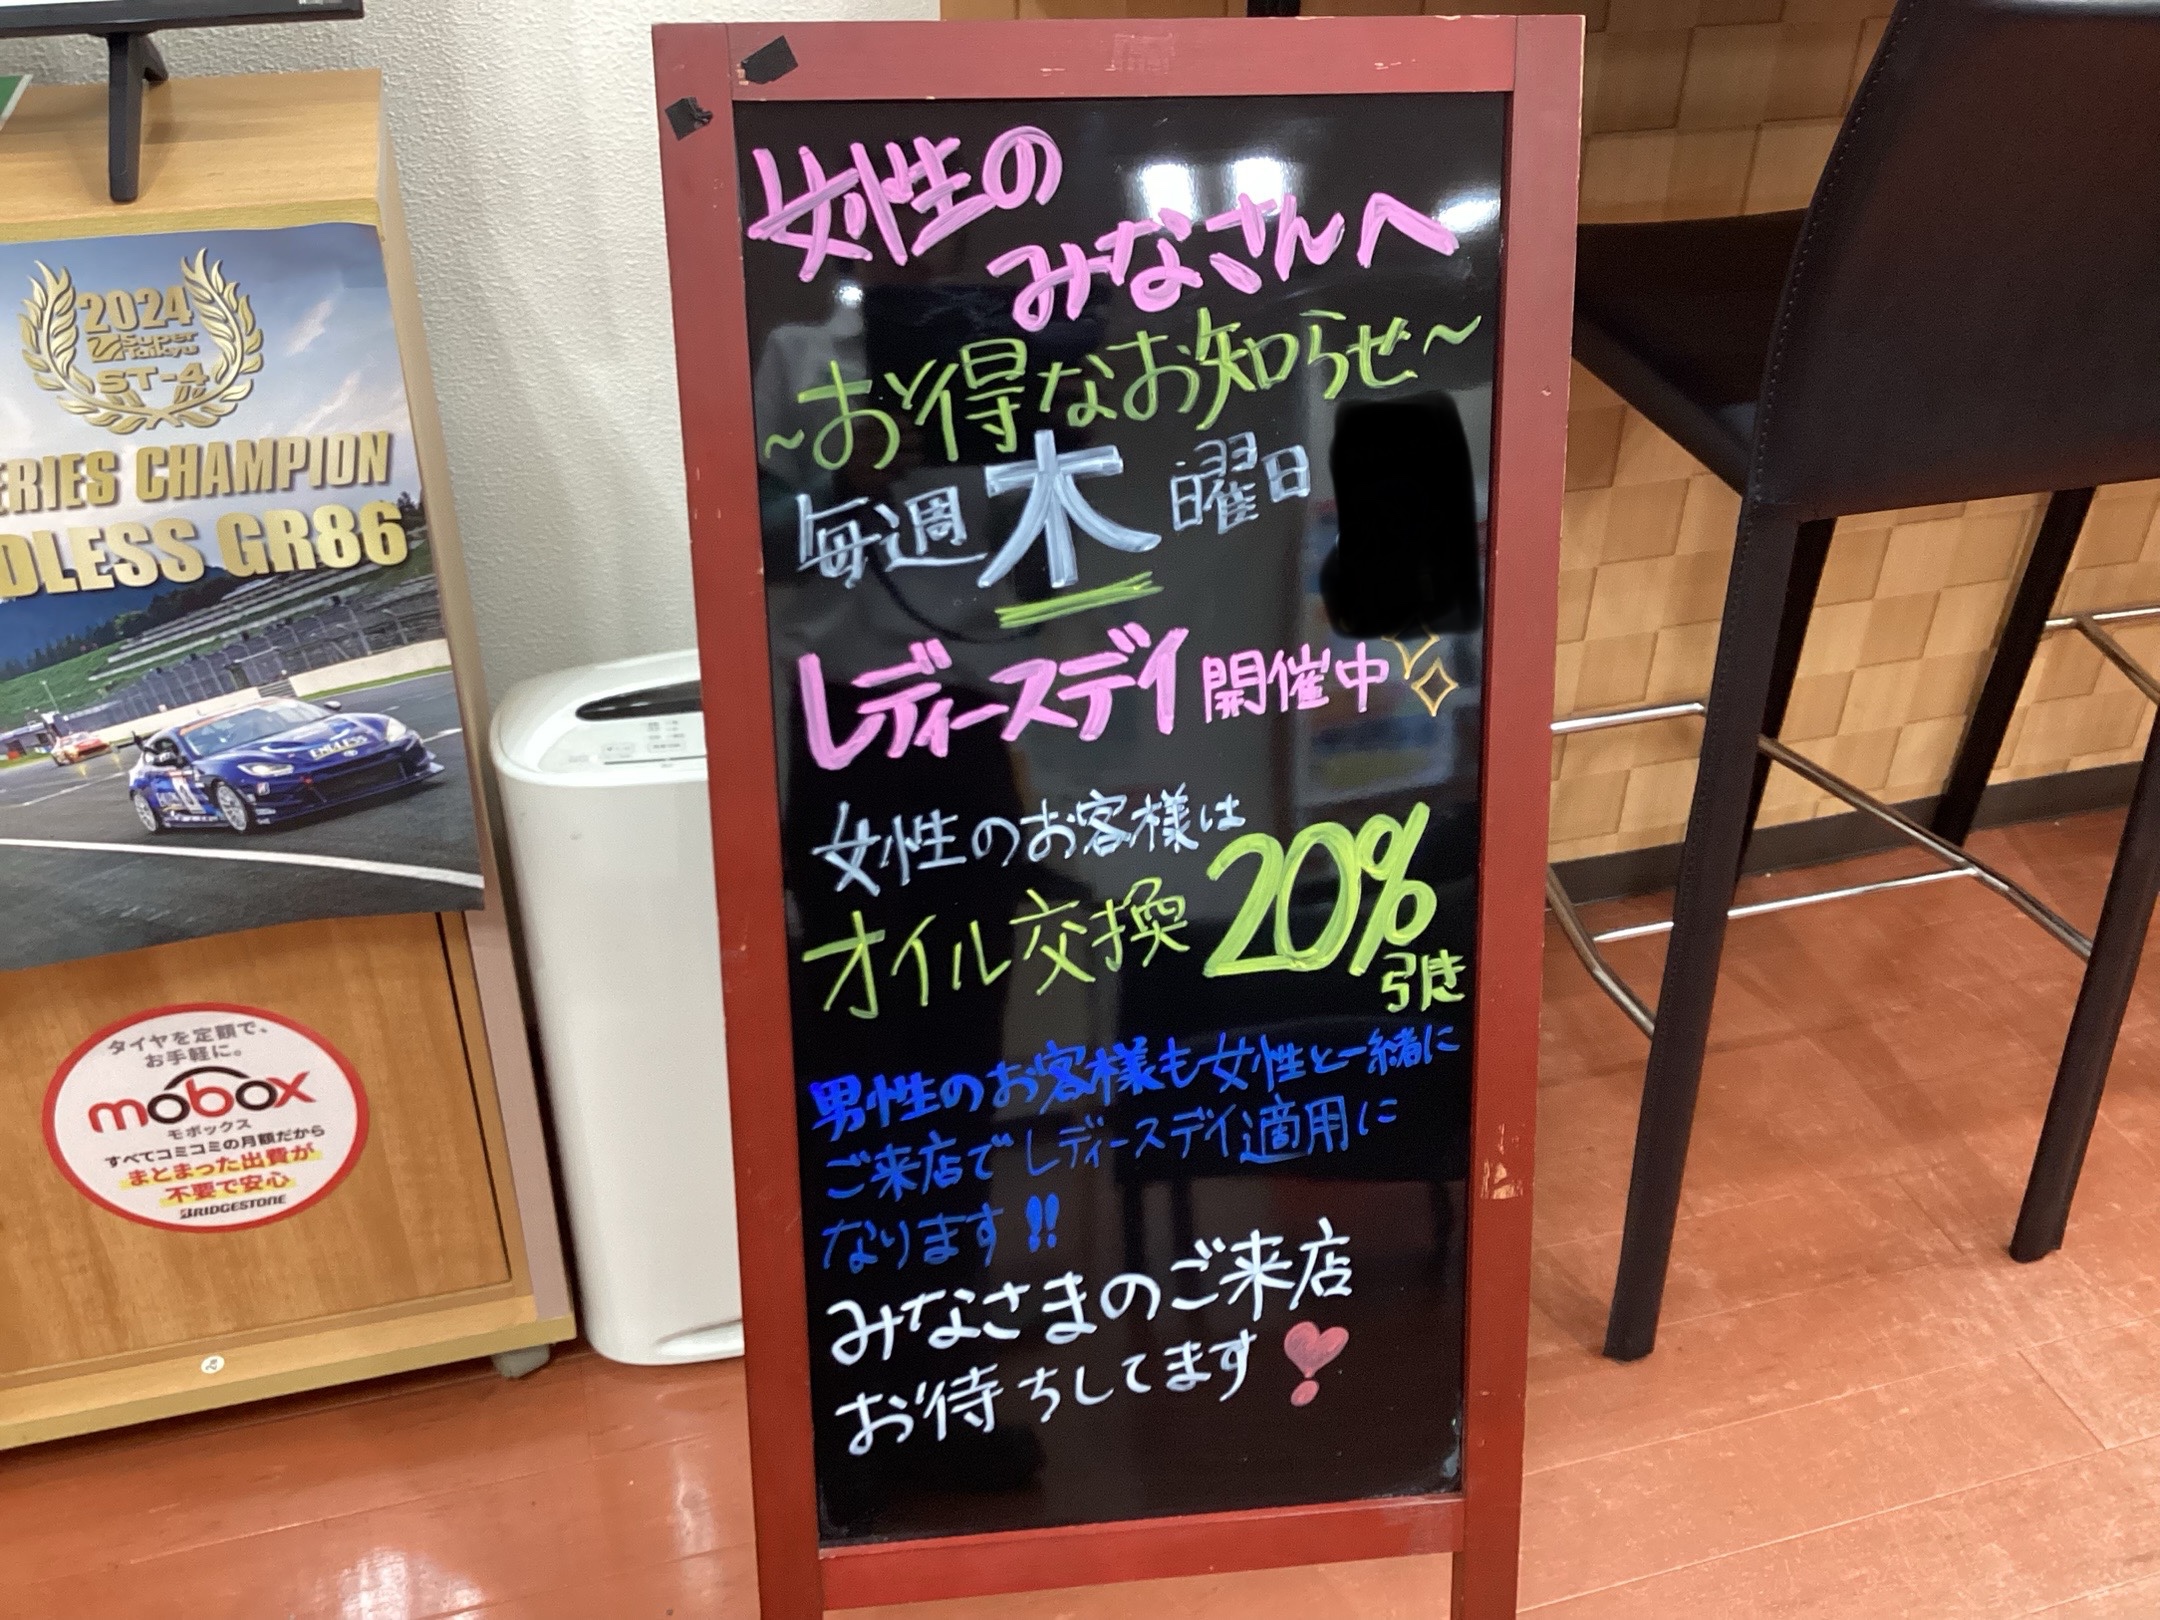 2024
Super
Taikyu
ST-4
ERIES CHAMPION
DLESS GR86
ENDLESS
タイヤを定額で、
お手軽に。
mobox
モボックス
すべてコミコミの月額だから
まとまった出費が
不要で安心
BRIDGESTONE
女性の
みなさんへ
~お得なお知らせ~
毎週木曜日
レディースデイ開催中
女性のお客様は
オイル交換20%
引き
男性のお客様も女性と一緒に
ご来店でレディースデイ適用に
なります!!
みなさまのご来店
お待ちしてます